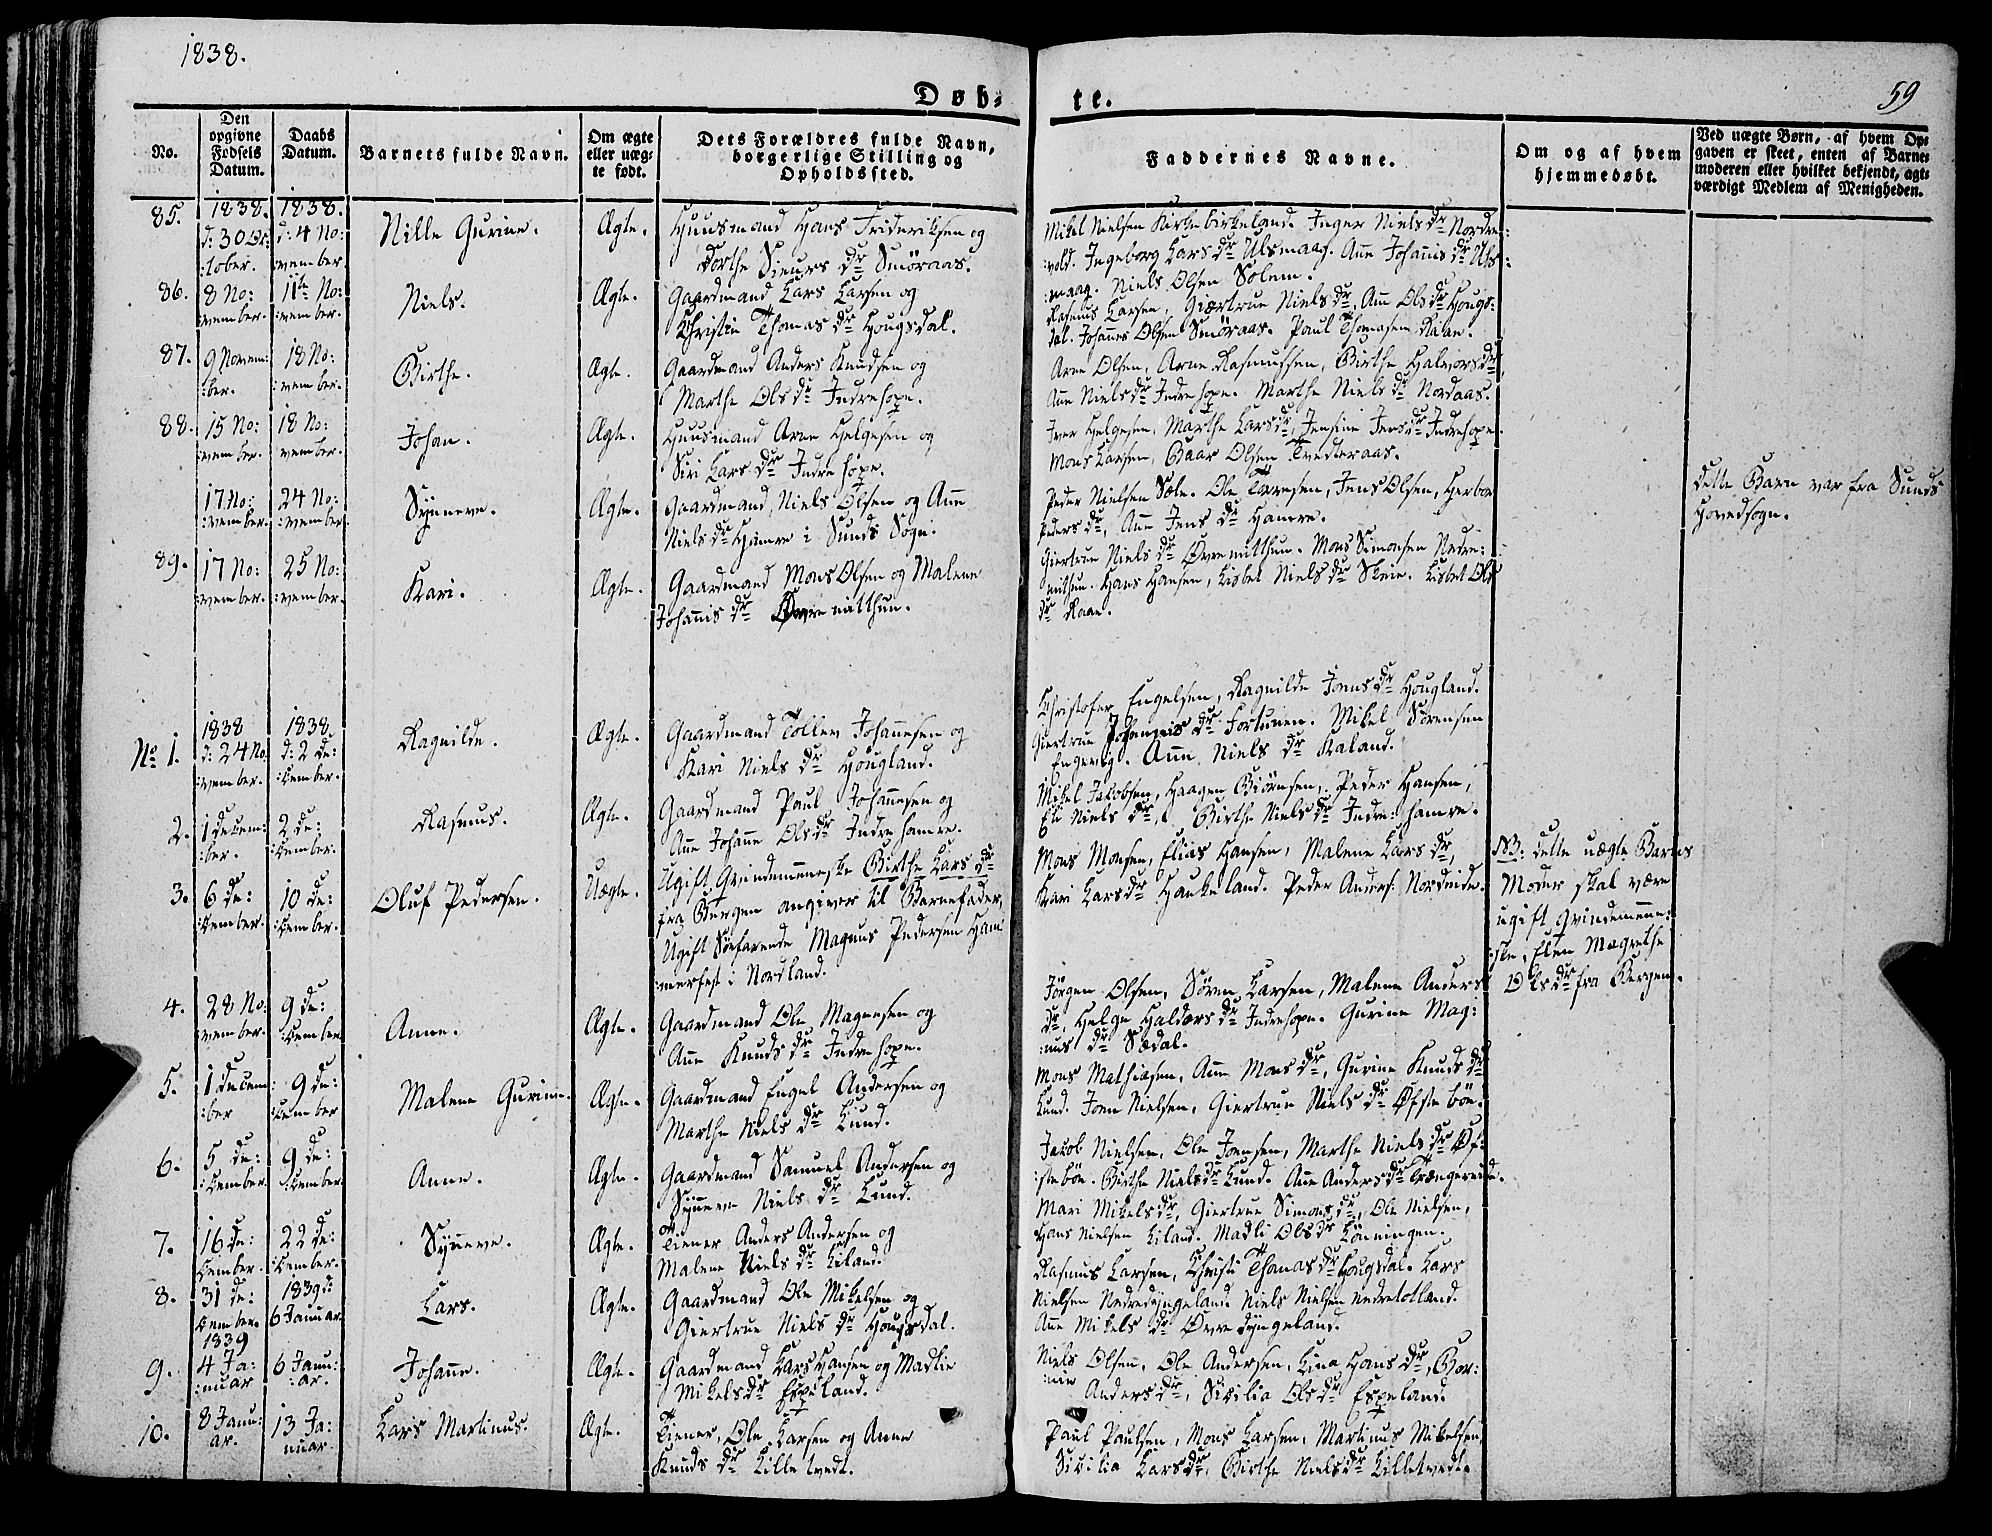 1838.
Døb-
te.
59
No.
Den opgivne Fødsels Datum.
Daabs Datum.
Barnets fulde Navn.
Om ægte eller uæg- te født.
Dets Forældres fulde Navn, borgerlige Stilling og Opholdssted.
Faddernes Navne.
Om og af hvem hjemmedøbt.
Ved uægte Børn, af hvem Op- gaven er skeet, enten af Barne- moderen eller hvilket bekjendt, agt- værdigt Medlem af Menigheden.
85. 1838. d: 30 Oc: :tober. 1838. d: 4 No: :vember. Nille Gurine. Ægte.
Huusmand Hans Frideriksen og
Dorthe Sieurs dr Smøraas.
Mikel Nielsen Kirkebirkeland. Inger Niels dr Nordre:
:vold. Ingeborg Lars dr Ulsmaag. Anne Johannis dr Uls:
:maag. Niels Olsen Solem.
86. 8 No: :vember. 11te No: :vember. Niels. Ægte.
Gaardmand Lars Larsen og
Christin Thomas dr Hougsdal.
Rasmus Larsen, Giertrue Niels dr, Anne Ols dr Hougs:
dal. Johannes Olsen Smøraas. Paul Thomasen Raae.
87. 9 Novem: :ber. 18 No: :vember. Birthe. Ægte.
Gaardmand Anders Knudsen og
Marthe Ols dr Indrehope.
Arne Olsen, Arne Rasmussen, Birthe Halvors dr,
Anne Niels dr Indrehope. Marthe Niels dr Nordaas.
88. 15 No: :vember. 18 No: vember. Johan. Ægte.
Huusmand Arne Helgesen og
Siri Lars dr Indrehope.
Iver Helgesen, Marthe Lars dr, Jensine Jens dr Indrehope.
Mons Larsen, Baar Olsen Tvedteraas.
17 No: :vember. 24 No: :vember. Synneve. Ægte.
Gaardmand, Niels Olsen og Anne
Niels dr Hamre i Sunds Sogn.
Peder Nielsen Sæle. Ole Terresen, Jens Olsen, Herbor
Peders dr, Anne Jens dr Hamre.
Dette Barn var fra Sunds
Hovedsogn.
89. 17 No: :vember. 25 No: :vember. Kari. Ægte.
Gaardmand Mons Olsen og Malene
Johannis dr Øvremitthun.
Giertrue Niels dr Øvremitthun. Mons Simonsen Nedre:
mithun. Hans Hansen, Lisbet Niels dr Skeie. Lisbet Ols
dr Raae.
No 1. 1838 d: 24 No: :vember. 1838 d: 2 De: :cember. Ragnilde. Ægte.
Gaardmand Tollev Johannesen og
Kari Niels dr Hougland.
Christofer Engelsen, Ragnilde Jonns dr Hougland.
Giertrue Johannis dr Fortunen. Mikel Sørensen
Engevig. Anne Niels dr Kaland.
2. 1 Decem: :ber. 2 De: :cember. Rasmus. Ægte.
Gaardmand Paul Johannesen og
Anne Johanne Ols dr Indrehamre.
Mikel Jakobsen, Haagen Biørnsen, Peder Hansen,
Eli Niels dr, Birthe Niels dr Indre: hamre.
3. 6 De: :cember. 10 De: :cember. Oluf Pedersen. Uægte.
Ugift Qvindemenneske Birthe Lars dr
fra Bergen angiver til Barnefader,
Ugift Søefarende Magnus Pedersen Ham:
:merfest i Nordland.
Mons Monsen, Elias Hansen, Malene Lars dr,
Kari Lars dr Haukeland. Peder Anders: Nordeide.
NB: Dette uægte Barns
Moder skal være
ugift Qvindemenne:
:ske, Elen Magrethe
Ols dr fra Bergen.
4. 28 No: :vember. 9 De: :cember Anne. Ægte.
Gaardmand Ole Magnesen og
Anne Knuds dr Indrehope.
Jørgen Olsen, Søren Larsen, Malene Anders
dr, Helge Haldors dr Indrehope. Gurine Mag:
:nus dr Sædal.
5. 1 Decem: :ber 9 De: :cember Malene Gurine. Ægte.
Gaardmand Engel Andersen og
Marthe Niels dr Lund.
Mons Mathiasen, Anne Mons dr, Gurine Knuds dr
Lund. Joen Nielsen, Giertrue Niels dr Øfstebøe.
6. 5 De: :cember. 9 De: :cember. Anne. Ægte.
Gaardmand Samuel Andersen og
Synneve Niels dr Lund.
Jakob Nielsen, Ole Joensen, Marthe Niels dr Øf:
:stebøe. Birthe Niels dr Lund. Anne Anders dr Trængereide.
7. 16 De: :cember. 22 De: :cember. Synneve. Ægte.
Tiener Anders Andersen og
Malene Niels dr Liland.
Mari Mikels dr, Giertrue Simons dr, Ole Nielsen,
Hans Nielsen Liland. Madli Ols dr Lønningen.
8. 31 De: :cember. 1839 d: 6 Januar. Lars. Ægte.
Gaardmand Ole Mikelsen og
Giertrue Niels dr Hougsdal.
Rasmus Larsen, Christi Thomas dr Hougsdal. Lars
Nielsen Nedredyngeland. Niels Nielsen Nedretotland.
Anne Mikels dr Øvredyngeland.
9. 1839 4 Ja: :nuar 6 Janu: :ar. Johanne. Ægte.
Gaardmand Lars Hansen og Madlie
Mikels dr Espeland.
Niels Olsen, Ole Andersen, Lina Hans dr, Bor:
:nie Anders dr, Sicilia Ols dr Espeland.
10. 8 Janu: ar. 13 Ja: nuar Lars Martinus. Ægte.
Tiener, Ole Larsen og Anne
Knuds dr Lilletvedt.
Paul Paulsen, Mons Larsen, Martinus Mikelsen,
Sicilia Lars dr, Birthe Niels dr Lilletvedt.